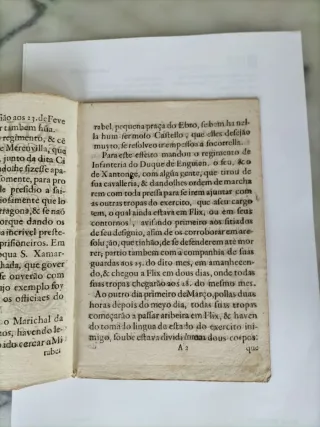 ão aos 25. de Feve
r tambem sua.
regimento, & cé
de Merenvilla, que
, junto da Ci
ndolhe fizesse apa-
osamente, para
de presidio a sai-
iosamente que os
rragona; & se não
ortando dando os
a incrivel preste-
prisioneiros. Em
oqua S. Xamar-
hada, que gover
o que foraõ com
ajo exemplo foy
os officiaes do
o Marichal da
nos, havendo le-
do cercar a Mi
rabel
rabel, pequena praça do Ebro, sobem ha nel-
la hum fermoso Castello; que elles desejão
muyto, se resolveo ir em pessoa a socorrella.
Para este effeito mandou o regimento de
Infanteria do Duque de Enguien, o seu, & o
de Xantonge, com algũa gente, que tirou de
sua cavalleria, & dandolhes ordem de marcha
rem com toda pressa para se irem ajuntar com
todas as outras tropas do exercito, que a seu cargo
tem, o qual ainda està em Flix, ou em seus
contornos, avisindo primeiro aos sitiados
de seu designio, afim de os corroborar em a re-
solução, que tinhão, de se defenderem atè mor
rer, partio tambem com a companhia de suas
guardas aos 25. do dito mes, em manhecen-
do, & chegou a Flix em dous dias, onde todas
suas tropas chegarão aos 28. do mesmo mes.
Ao outro dia primeiro de Março, pollas duas
horas depois do meyo dia, todas suas tropas
começarão a passar a ribeira em Flix, & haven
do tomado lingua do estado do exercito ini-
migo, soube estava dividido em dous corpos:
A 2 que